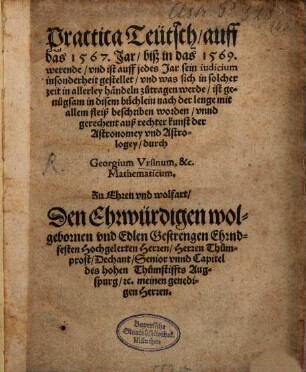 Practica Teütsch/auff
das 1567. Jar/ biß in das 1569.
werende/ vnd ist auff jedes Jar sein iudicium
insonderheit gestellet/ vnd was sich in solcher
zeit in allerley händeln zůtragen werde/ ist ge-
nůgsam in disem bůchlein nach der lenge mit
allem fleiß beschriben worden/ vnnd
gerechent auß rechter kunst der
Astronomey vnd Astro-
logey/ durch
Georgium Vrsinum, &c.
Mathematicum.
R.
Zu Ehren vnd wolfart/
Den Ehrwürdigen wol-
gebornen vnd Edlen Gestrengen Ehrnd-
festen Hochgelerten Herren/ Herren Thům-
prost/ Dechant/ Senior vnnd Capitel
des hohen Thůmstiffts Aug-
spurg/ &c. meinen genedi-
gen Herren.
Bayerische
Staatsbibliothek
München